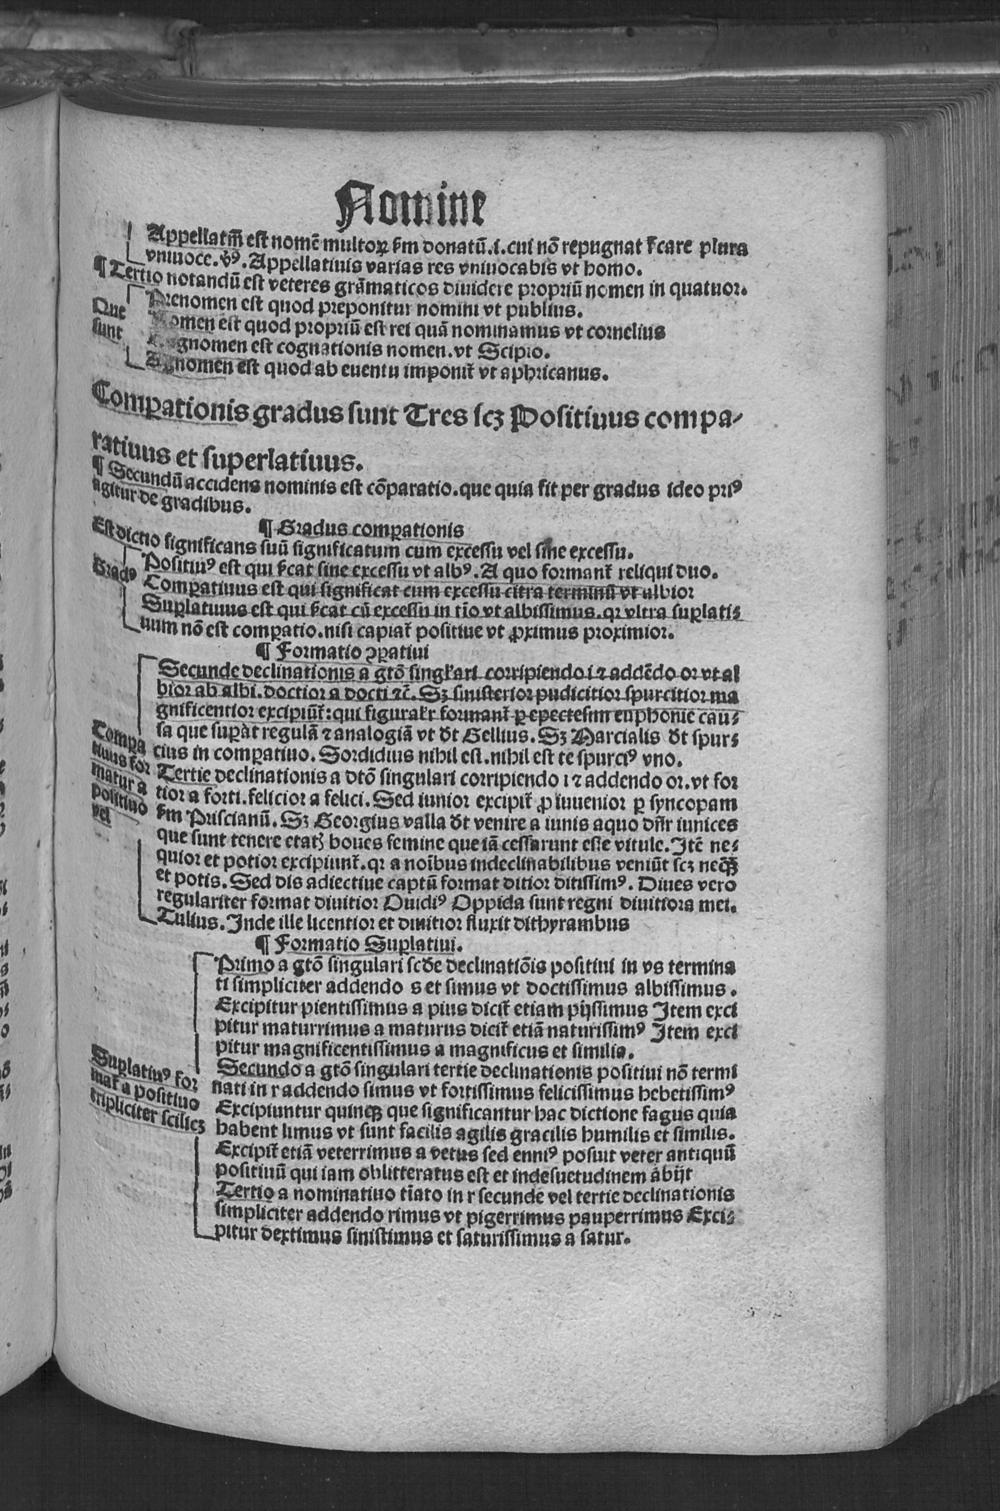 Nomine
Appellatiuũ est nomẽ multoꝝ ẜm donatũ.i.cui nõ repugnat ẜcare plura
vniuoce. Appellatiuis varias res vniuocabis vt homo.
¶ Tertio notandũ est veteres grãmaticos diuidere propriũ nomen in quatuor.
Prenomen est quod preponitur nomini vt publius.
Que Nomen est quod propriũ est rei quã nominamus vt cornelius
sunt Cognomen est cognationis nomen.vt Scipio.
Agnomen est quod ab euentu imponit̃ vt aphricanus.
Comꝑationis gradus sunt Tres scꝫ Positiuus compa-
ratiuus et superlatiuus.
¶ Secundũ accidens nominis est cõparatio.que quia fit per gradus ideo priꝰ
agitur de gradibus.
¶ Gradus comꝑationis
Est dictio significans suũ significatum cum excessu vel sine excessu.
Positiuꝰ est qui ẜcat sine excessu vt albꝰ. A quo formant̃ reliqui duo.
Gradꝰ Comꝑatiuus est qui significat cum excessu citra terminũ vt albior
Suꝑlatiuus est qui ẜcat cũ excessu in t̃io vt albissimus.qr vltra suꝑlati-
uum nõ est comꝑatio.nisi capiat̃ positiue vt ꝓximus proximior.
¶ Formatio ↄꝑatiui
Secunde declinationis a gtõ singl̃ari corripiendo i ⁊ addẽdo or vt al
bior ab albi.doctior a docti ⁊c̃. Sꝫ sinisterior pudicitior spurcitior ma
gnificentior excipiũt̃:qui figuralr̃ formant̃ ꝑ epectesim euphonie cau-
sa que suꝑat regulã ⁊ analogiã vt dt̃ Gellius. Sꝫ Marcialis dt̃ spur-
Compa cius in comꝑatiuo. Sordidius nihil est.nihil est te spurciꝰ vno.
tiuus for Tertie declinationis a dtõ singulari corripiendo i ⁊ addendo or.vt for
matur a tior a forti.felicior a felici. Sed iunior excipit̃ ꝓ iuuenior ꝑ syncopam
positiuo ẜm Priscianũ. Sꝫ Georgius valla dt̃ venire a iunis aquo dn̄r iunices
vel que sunt tenere etatꝭ boues femine que iã cessarunt esse vitule. Itẽ ne-
quior et potior excipiunt̃.qr a noĩbus indeclinabilibus veniũt scꝫ neqꝫ
et potis. Sed dis adiectiue captũ format ditior ditissimꝰ. Diues vero
regulariter format diuitior Ouidiꝰ Oppida sunt regni diuitiora mei.
Tulius. Inde ille licentior et diuitior fluxit dithyrambus
¶ Formatio Suꝑlatiui.
Primo a gtõ singulari scd̃e declinatiõis positiui in vs termina
ti simpliciter addendo s et simus vt doctissimus albissimus.
Excipitur pientissimus a pius dicit̃ etiam pijssimus Item exci
pitur maturrimus a maturus dicit̃ etiã naturissimꝰ Item exci
pitur magnificentissimus a magnificus et similia.
Suꝑlatiuꝰ for Secundo a gtõ singulari tertie declinationis positiui nõ termi
mat̃ a positiuo nati in r addendo simus vt fortissimus felicissimus hebetissimꝰ
tripliciter scilicꝫ Excipiuntur quinqꝫ que significantur hac dictione fagus quia
habent limus vt sunt facilis agilis gracilis humilis et similis.
Excipit̃ etiã veterrimus a vetus sed enniꝰ posuit veter antiquũ
positiuũ qui iam oblitteratus est et indesuetudinem abijt
Tertio a nominatiuo t̃iato in r secunde vel tertie declinationis
simpliciter addendo rimus vt pigerrimus pauperrimus Exci-
pitur dextimus sinistimus et saturissimus a satur.